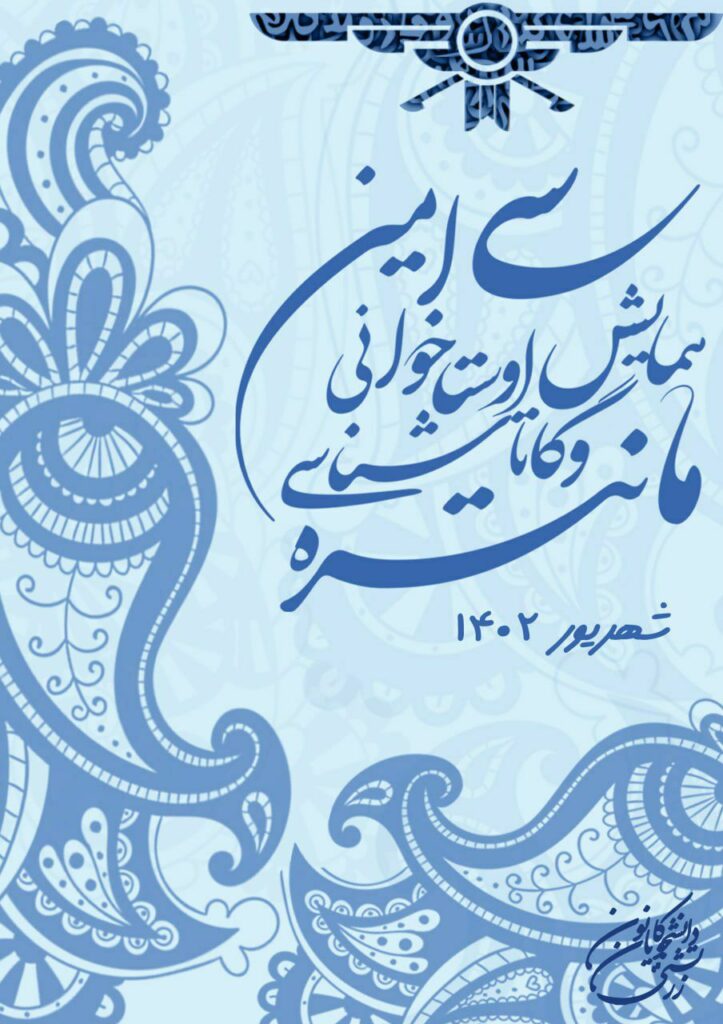 سی امین
همایش اوستاخوانی
و گاتاشناسی
مانتره
شهریور ۱۴۰۲
کانون
دانشجویان
زرتشتی